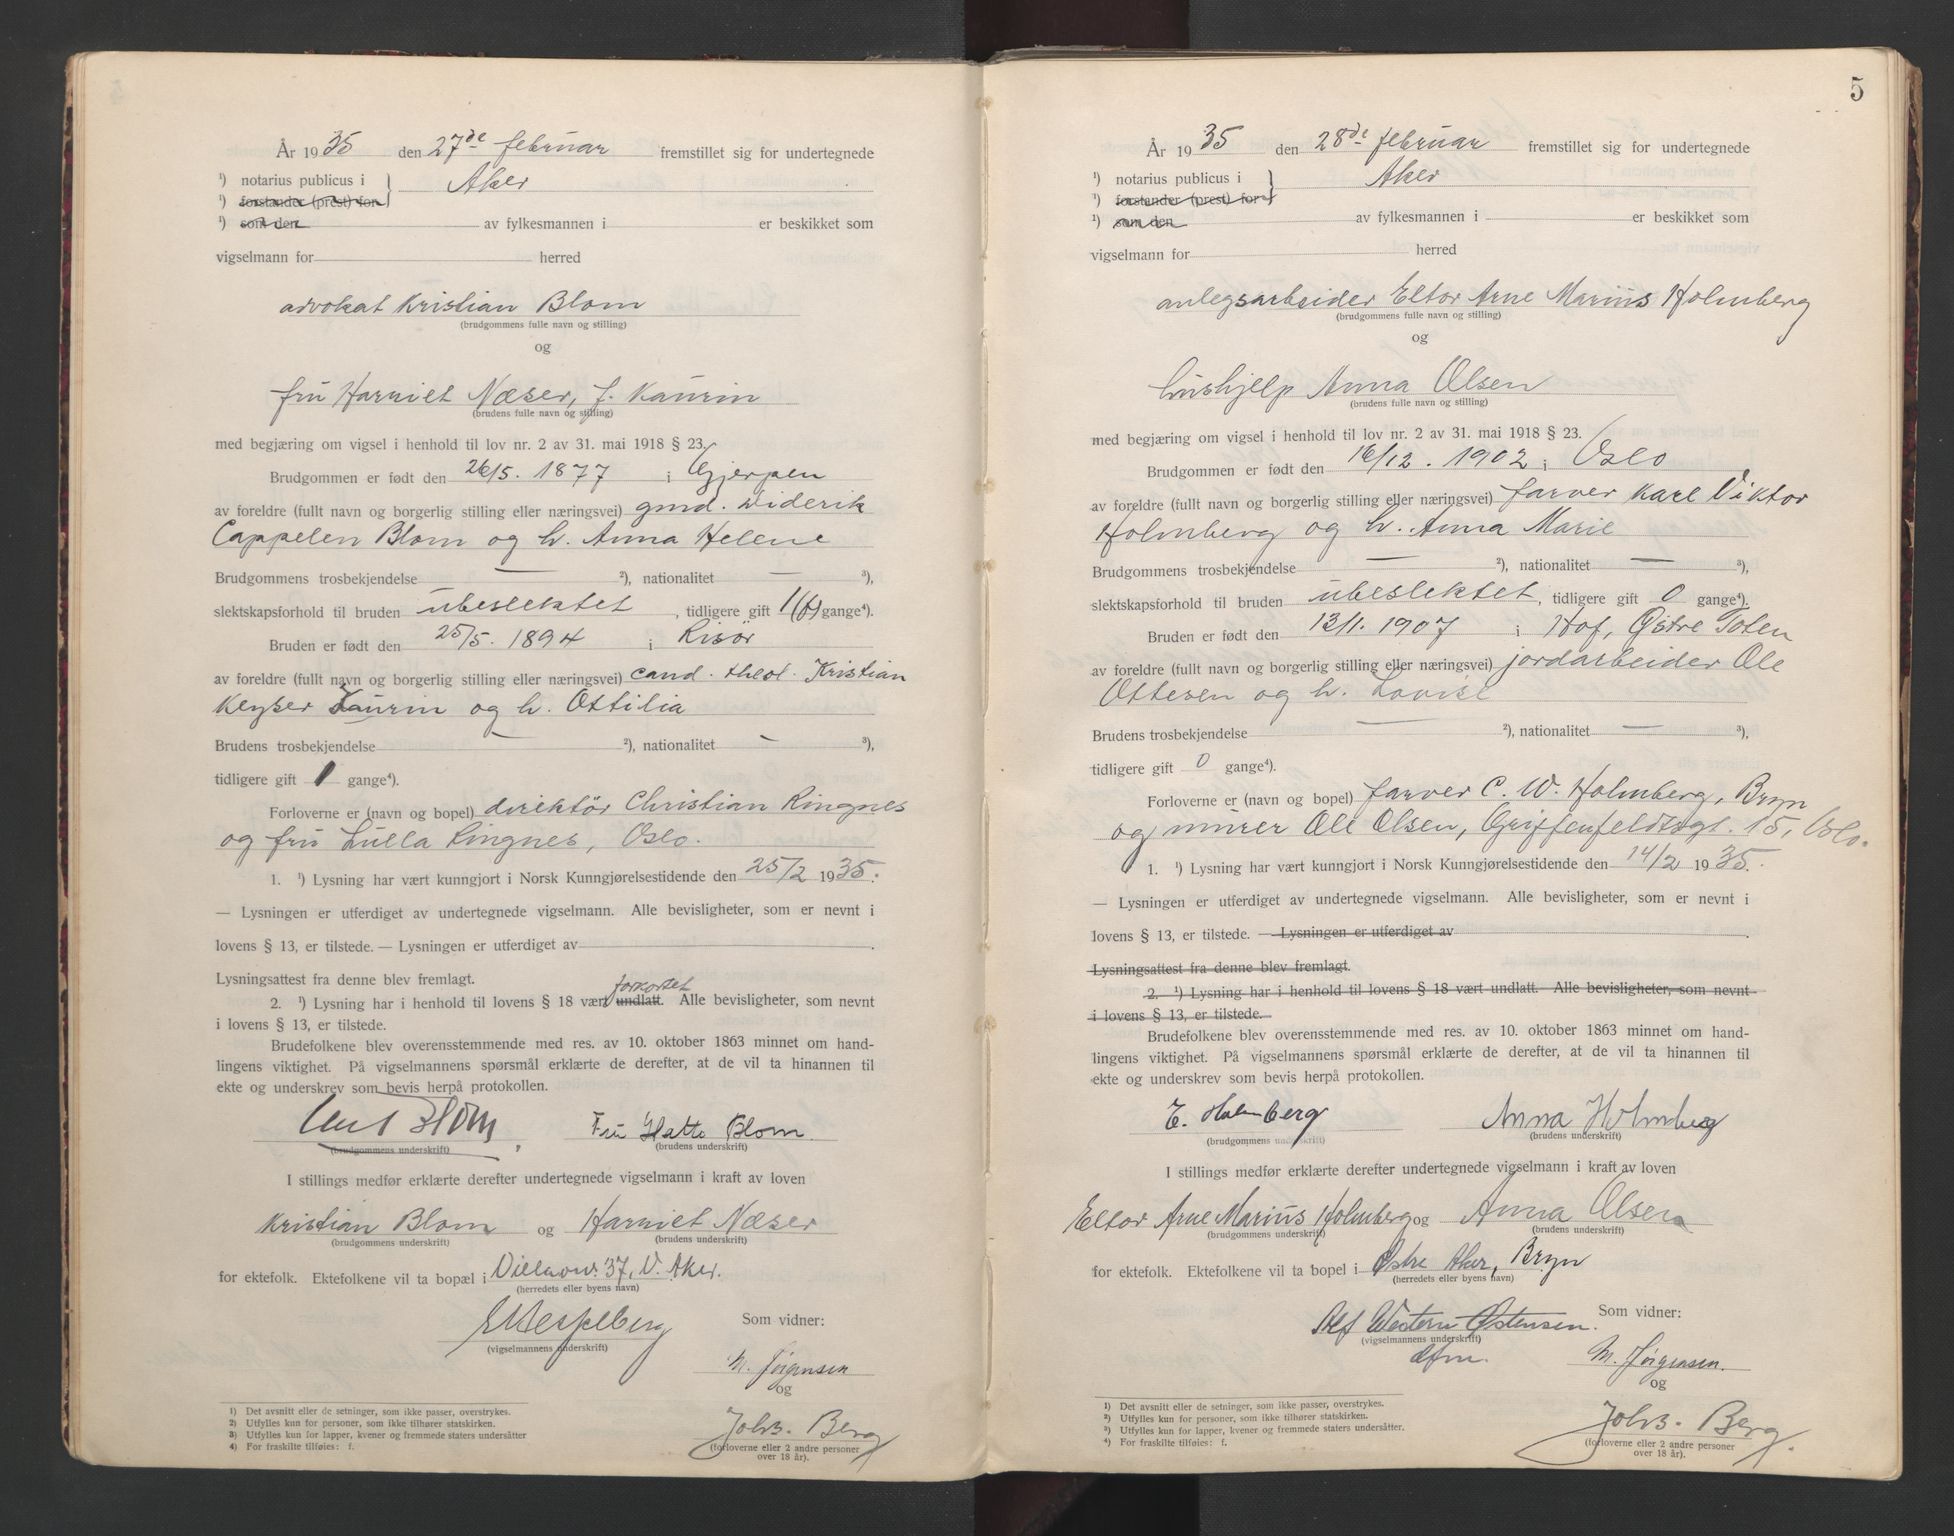 År 1935 den 27de februar fremstillet sig for undertegnede
¹) notarius publicus i } Aker
¹) forstander (prest) for
¹) som den av fylkesmannen i er beskikket som
vigselmann for herred
advokat Kristian Blom
(brudgommens fulle navn og stilling)
og
fru Harriet Næser, f. Kaurin
(brudens fulle navn og stilling)
med begjæring om vigsel i henhold til lov nr. 2 av 31. mai 1918 § 23.
Brudgommen er født den 26/5. 1877 i Gjerpen
av foreldre (fullt navn og borgerlig stilling eller næringsvei) gmd. Diderik
Cappelen Blom og h. Anna Helene
Brudgommens trosbekjendelse — ²), nationalitet — ³),
slektskapsforhold til bruden ubeslektet, tidligere gift 1(f) gange⁴).
Bruden er født den 25/5. 1894 i Risör
av foreldre (fullt navn og borgerlig stilling eller næringsvei) cand. theol. Kristian
Keyser Kaurin og h. Ottilia
Brudens trosbekjendelse ²), nationalitet - ³),
tidligere gift 1 gange⁴).
Forloverne er (navn og bopel) direktör Christian Ringnes
og fru Lulla Ringnes, Oslo.
1. ¹) Lysning har vært kunngjort i Norsk Kunngjørelsestidende den 25/2 1935.
— Lysningen er utferdiget av undertegnede vigselmann. Alle bevisligheter, som er nevnt i
lovens § 13, er tilstede. — Lysningen er utferdiget av
Lysningsattest fra denne blev fremlagt.
forkortet
2. ¹) Lysning har i henhold til lovens § 18 vært undlatt. Alle bevisligheter, som nevnt
i lovens § 13, er tilstede.
Brudefolkene blev overensstemmende med res. av 10. oktober 1863 minnet om hand-
lingens viktighet. På vigselmannens spørsmål erklærte de derefter, at de vil ta hinannen til
ekte og underskrev som bevis herpå protokollen.
Blom Fru Hatto Blom.
(brudgommens underskrift) (brudens underskrift)
I stillings medfør erklærte derefter undertegnede vigselmann i kraft av loven
Kristian Blom og Harriet Næser
(brudgommens underskrift) (brudens underskrift)
for ektefolk. Ektefolkene vil ta bopæl i 37, V. Aker.
(herredets eller byens navn)
Som vidner:
(vigselmannens underskrift)
M. Jörgensen
og
Johs. Berg
(forloverne eller 2 andre personer
over 18 år).
¹) Det avsnitt eller de setninger, som ikke passer, overstrykes.
²) Utfylles kun for personer, som ikke tilhører statskirken.
³) Utfylles kun for lapper, kvener og fremmede staters undersåtter
⁴) For fraskilte tilføies: f.
5
År 1935 den 28de februar fremstillet sig for undertegnede
¹) notarius publicus i } Aker
¹) forstander (prest) for
¹) som den av fylkesmannen i er beskikket som
vigselmann for herred
anlegsarbeider Eltor Arne Marius Holmberg
(brudgommens fulle navn og stilling)
og
hushjelp Anna Olsen
(brudens fulle navn og stilling)
med begjæring om vigsel i henhold til lov nr. 2 av 31. mai 1918 § 23.
Brudgommen er født den 16/12. 1902 i Oslo
av foreldre (fullt navn og borgerlig stilling eller næringsvei) farver Karl Viktor
Holmberg og h. Anna Marie
Brudgommens trosbekjendelse — ²), nationalitet — ³),
slektskapsforhold til bruden ubeslektet, tidligere gift 0 gange⁴).
Bruden er født den 13/1. 1907 i Hof, Østre Toten
av foreldre (fullt navn og borgerlig stilling eller næringsvei) jordarbeider Ole
Ottesen og h. Lovise
Brudens trosbekjendelse — ²), nationalitet — ³),
tidligere gift 0 gange⁴).
Forloverne er (navn og bopel) farver C. W. Holmberg, Bryn
og murer Ole Olsen, Griffenfeldtsgt. 15, Oslo.
1. ¹) Lysning har vært kunngjort i Norsk Kunngjørelsestidende den 14/2 1935.
— Lysningen er utferdiget av undertegnede vigselmann. Alle bevisligheter, som er nevnt i
lovens § 13, er tilstede. — Lysningen er utferdiget av
Lysningsattest fra denne blev fremlagt.
2. ¹) Lysning har i henhold til lovens § 18 vært undlatt. Alle bevisligheter, som nevnt
i lovens § 13, er tilstede.
Brudefolkene blev overensstemmende med res. av 10. oktober 1863 minnet om hand-
lingens viktighet. På vigselmannens spørsmål erklærte de derefter, at de vil ta hinannen til
ekte og underskrev som bevis herpå protokollen.
E. Holmberg Anna Holmberg
(brudgommens underskrift) (brudens underskrift)
I stillings medfør erklærte derefter undertegnede vigselmann i kraft av loven
Eltor Arne Marius Holmberg og Anna Olsen
(brudgommens underskrift) (brudens underskrift)
for ektefolk. Ektefolkene vil ta bopel i Østre Aker, Bryn
(herredets eller byens navn)
Alf Western Østensen. Som vidner:
(vigselmannens underskrift)
dfm. M. Jörgensen.
og
Johs. Berg.
(forloverne eller 2 andre personer
over 18 år).
¹) Det avsnitt eller de setninger, som ikke passer, overstrykes.
²) Utfylles kun for personer, som ikke tilhører statskirken.
³) Utfylles kun for lapper, kvener og fremmede staters undersåtter.
⁴) For fraskilte tilføies: f.